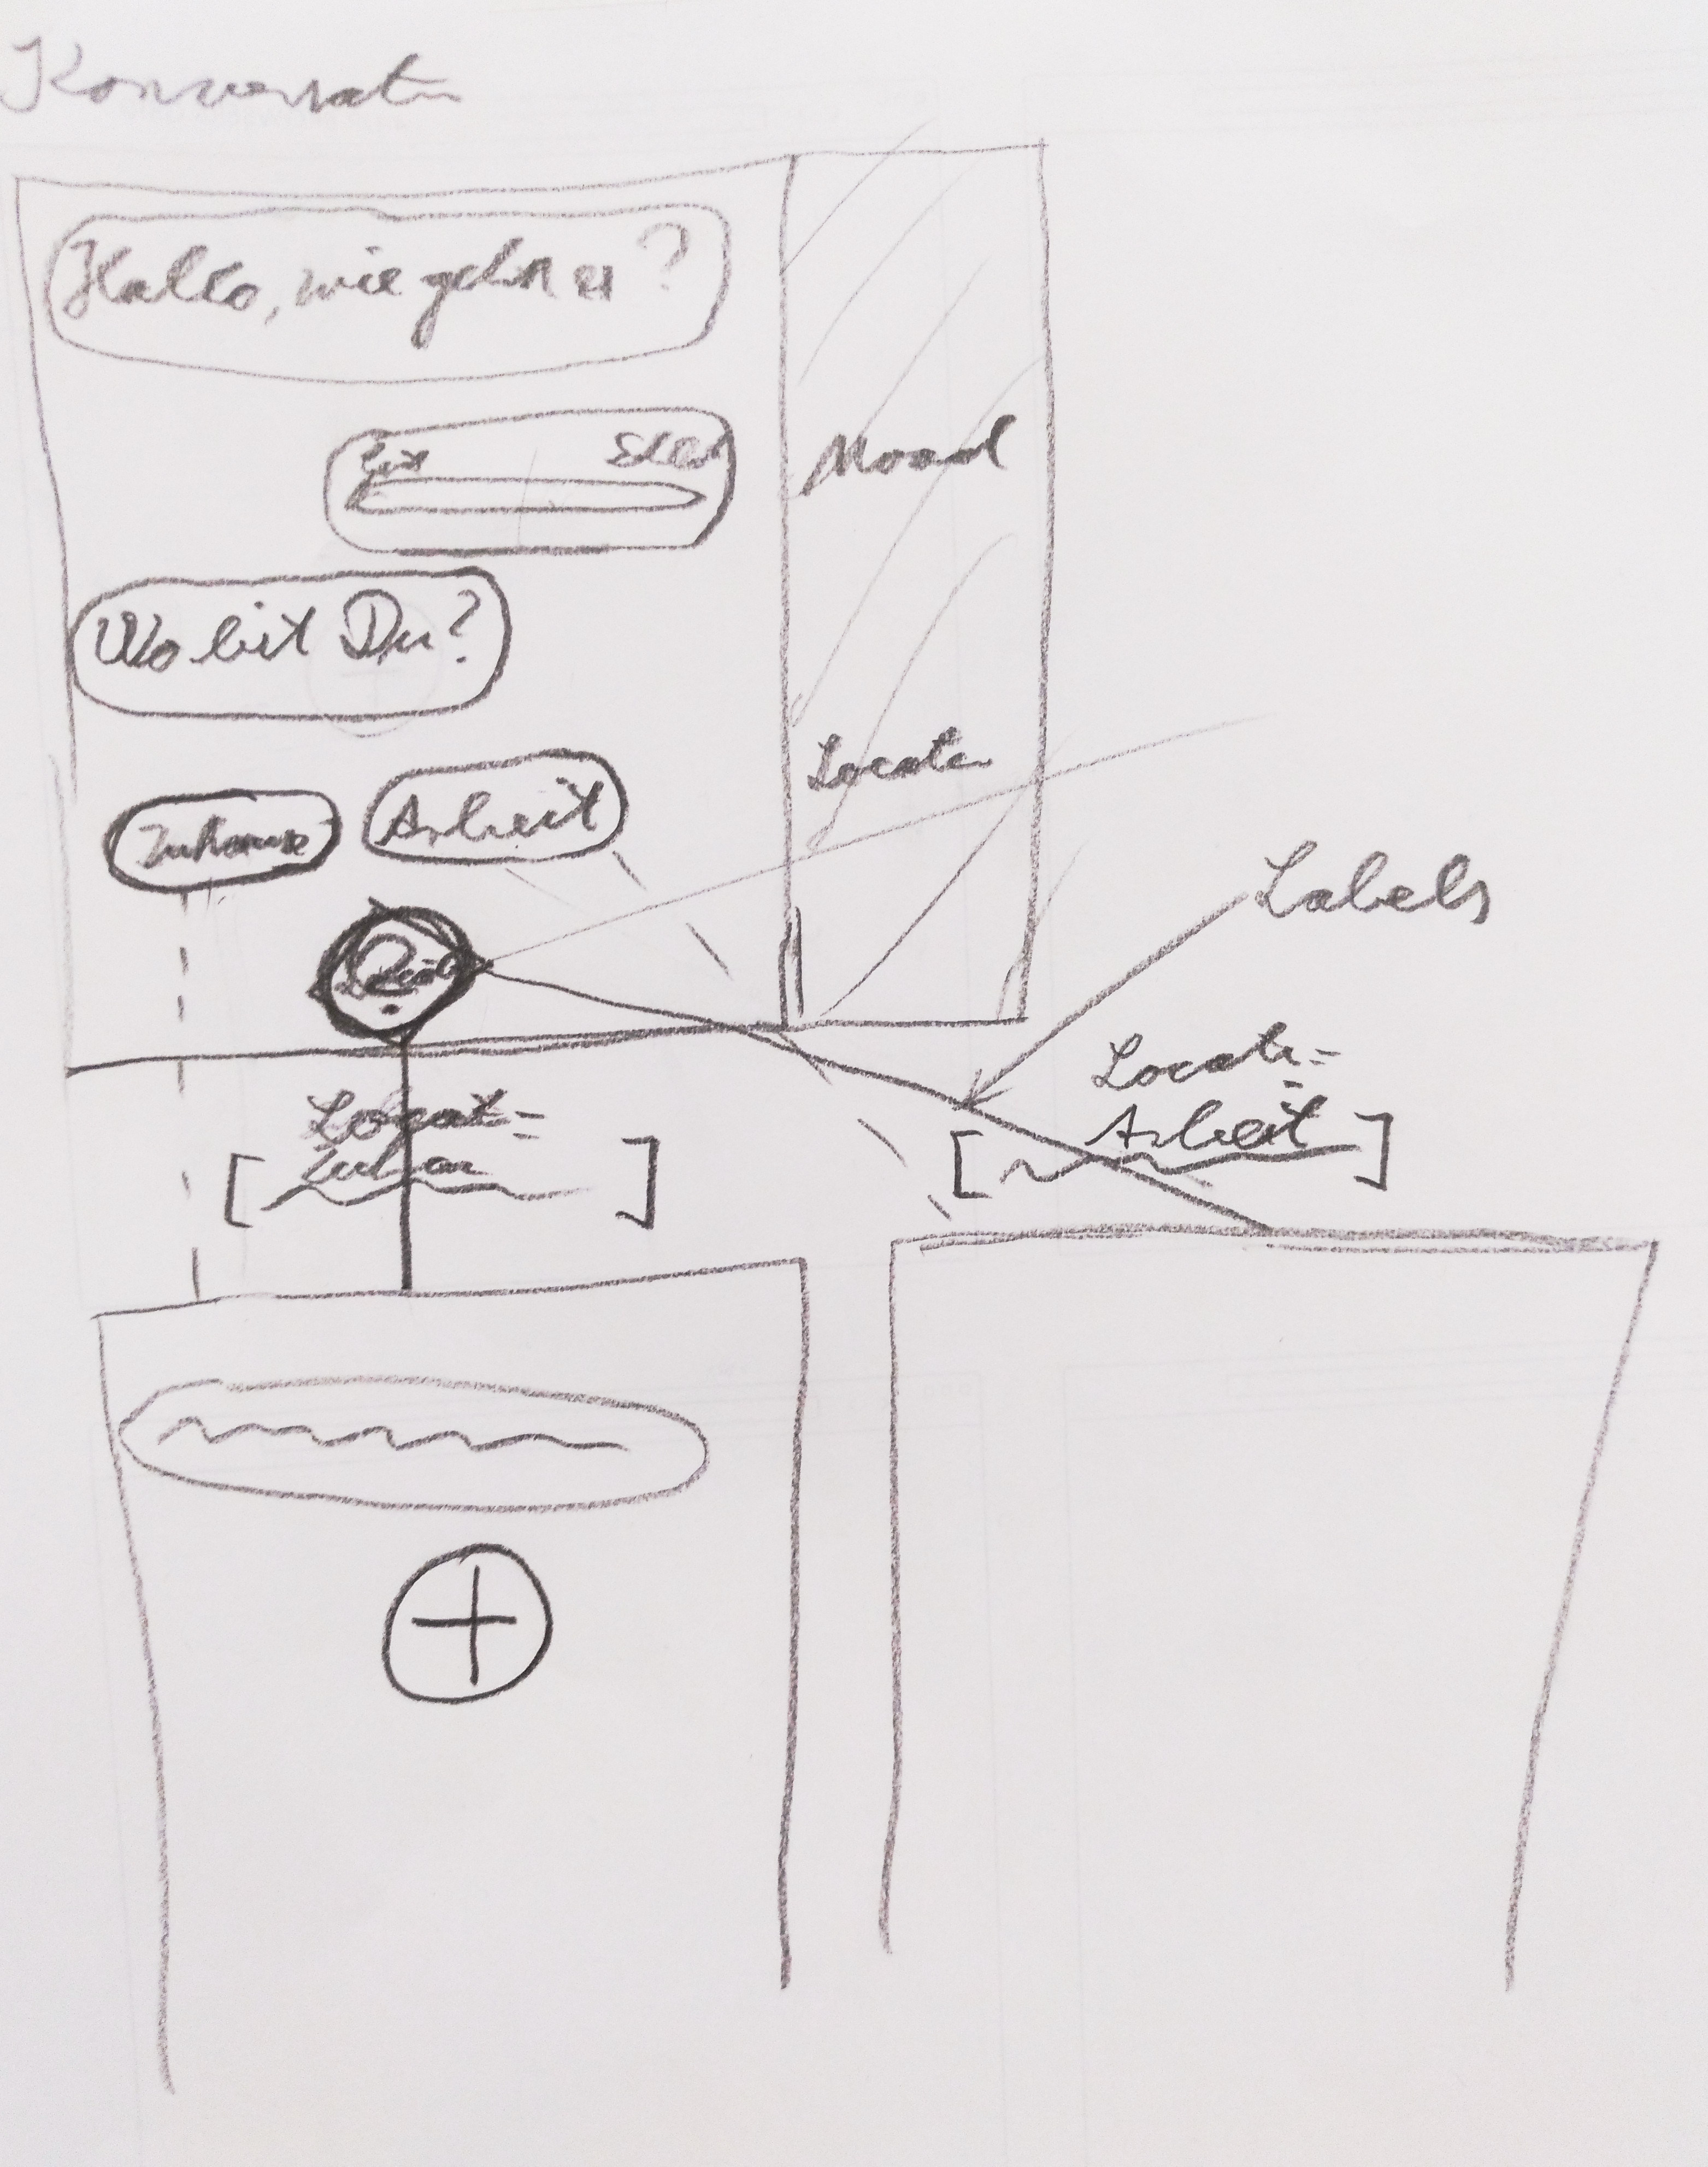 Konversation
Hallo, wie geht es ?
gut Schl
Mood
Wo bist Du?
Location
Zuhause
Arbeit
?
Labels
Locat =
Zuhau
Locati =
Arbeit